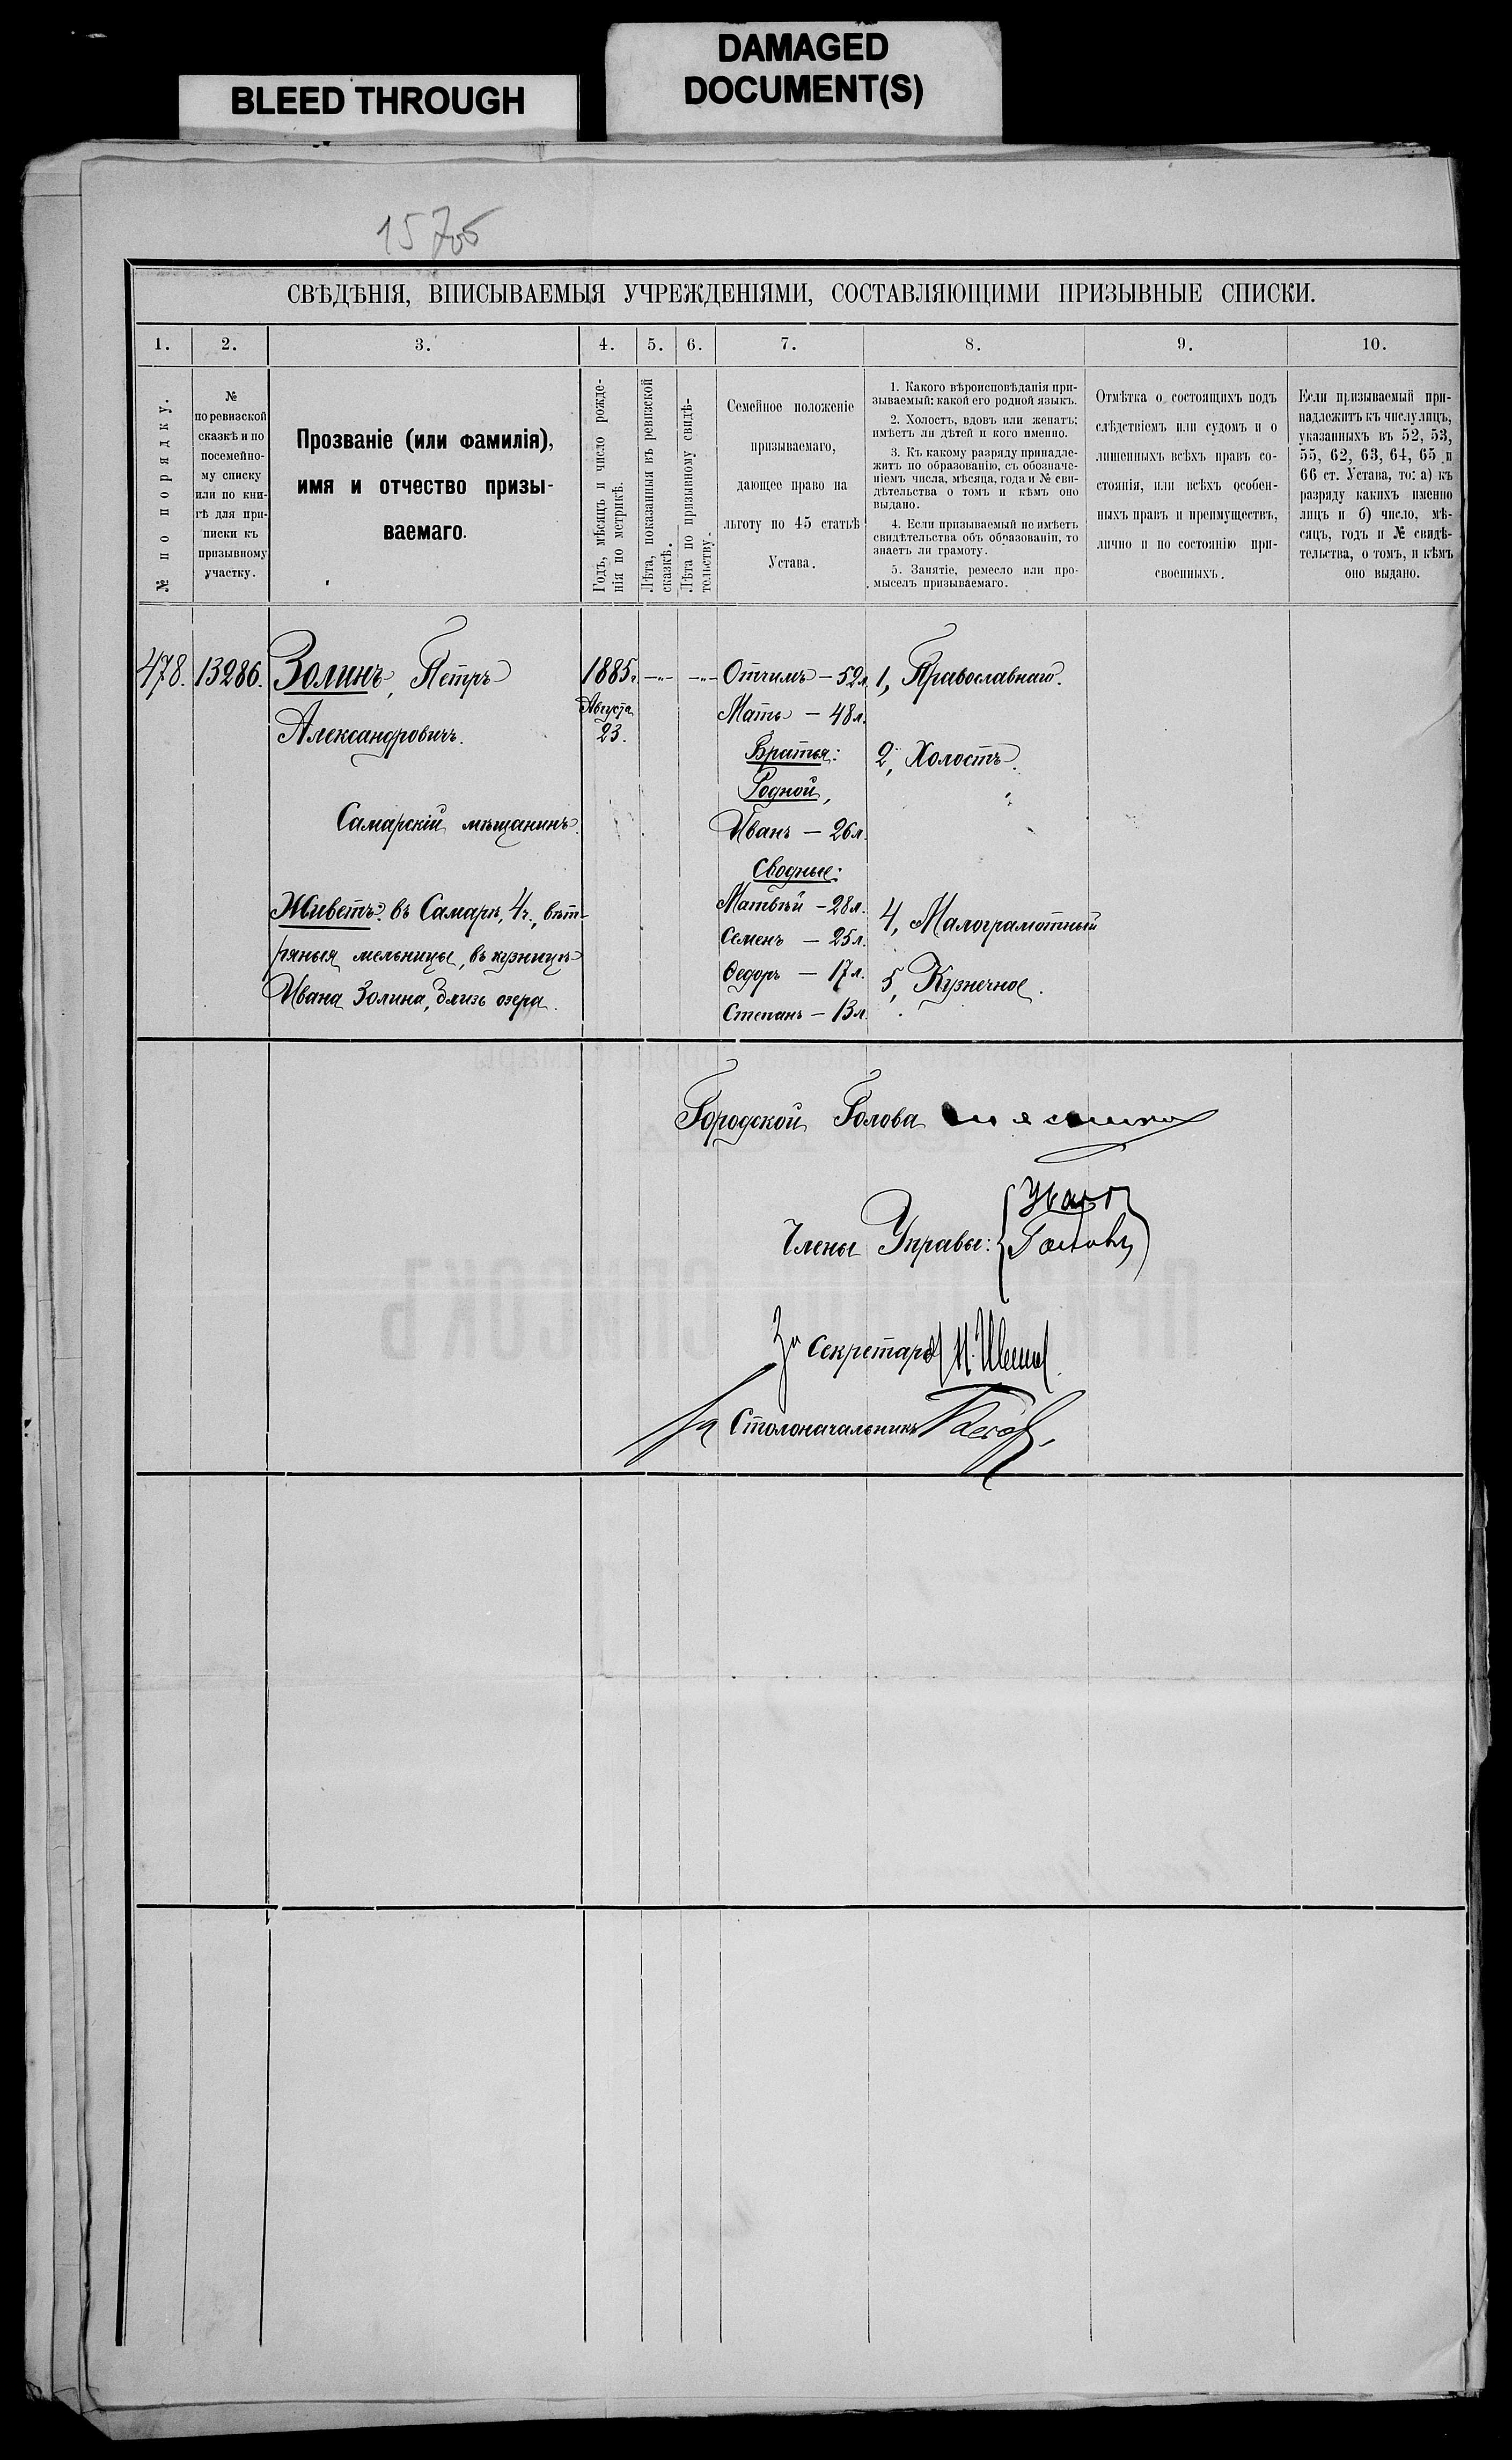 BLEED THROUGH
DAMAGED
DOCUMENT(S)
СВѢДѢНІЯ, ВПИСЫВАЕМЫЯ УЧРЕЖДЕНІЯМИ, СОСТАВЛЯЮЩИМИ ПРИЗЫВНЫЕ СПИСКИ.
1. 2. 3. 4. 5. 6. 7. 8. 9. 10.
№ по порядку.
№
по ревизской
сказкѣ и по
посемейно-
му списку
или по кни-
гѣ для при-
писки къ
призывному
участку.
Прозваніе (или фамилія),
имя и отчество призы-
ваемаго.
Годъ, мѣсяцъ и число рожде-
нія по метрикѣ.
Лѣта, показанныя въ ревизской
сказкѣ.
Лѣта по призывному свидѣ-
тельству.
Семейное положеніе
призываемаго,
дающее право на
льготу по 45 статьѣ
Устава.
1. Какого вѣроисповѣданія при-
зываемый; какой его родной языкъ.
2. Холостъ, вдовъ или женатъ;
имѣетъ ли дѣтей и кого именно.
3. Къ какому разряду принадле-
житъ по образованію, съ обозначе-
ніемъ числа, мѣсяца, года и № сви-
дѣтельства о томъ и кѣмъ оно
выдано.
4. Если призываемый не имѣетъ
свидѣтельства объ образованіи, то
знаетъ ли грамоту.
5. Занятіе, ремесло или про-
мыселъ призываемаго.
Отмѣтка о состоящихъ подъ
слѣдствіемъ или судомъ и о
лишенныхъ всѣхъ правъ со-
стоянія, или всѣхъ особен-
ныхъ правъ и преимуществъ,
лично и по состоянію при-
своенныхъ.
Если призываемый при-
надлежитъ къ числу лицъ,
указанныхъ въ 52, 53,
55, 62, 63, 64, 65 и
66 ст. Устава, то: а) къ
разряду какихъ именно
лицъ и б) число, мѣ-
сяцъ, годъ и № свидѣ-
тельства, о томъ, и кѣмъ
оно выдано.
478.
13286.
Золинъ, Петръ
Александровичъ.
Самарскій мѣщанинъ.
Живетъ: въ Самарѣ, 4ч., вѣт-
ряныя мельницы, въ кузницѣ
Ивана Золина, близь озера.
1885г.
Августа
23.
-"- -"-
Отчимъ – 52л.
Мать – 48л.
Братья:
Родной,
Иванъ – 26л.
Сводные:
Матвѣй – 28л.
Семенъ – 25л.
Ѳедоръ – 17л.
Степанъ – 13л.
1, Православнаго.
2, Холостъ.
4, Малограмотный
5, Кузнечное.
Городской Голова
Члены Управы:
За Секретаря
За Столоначальникъ